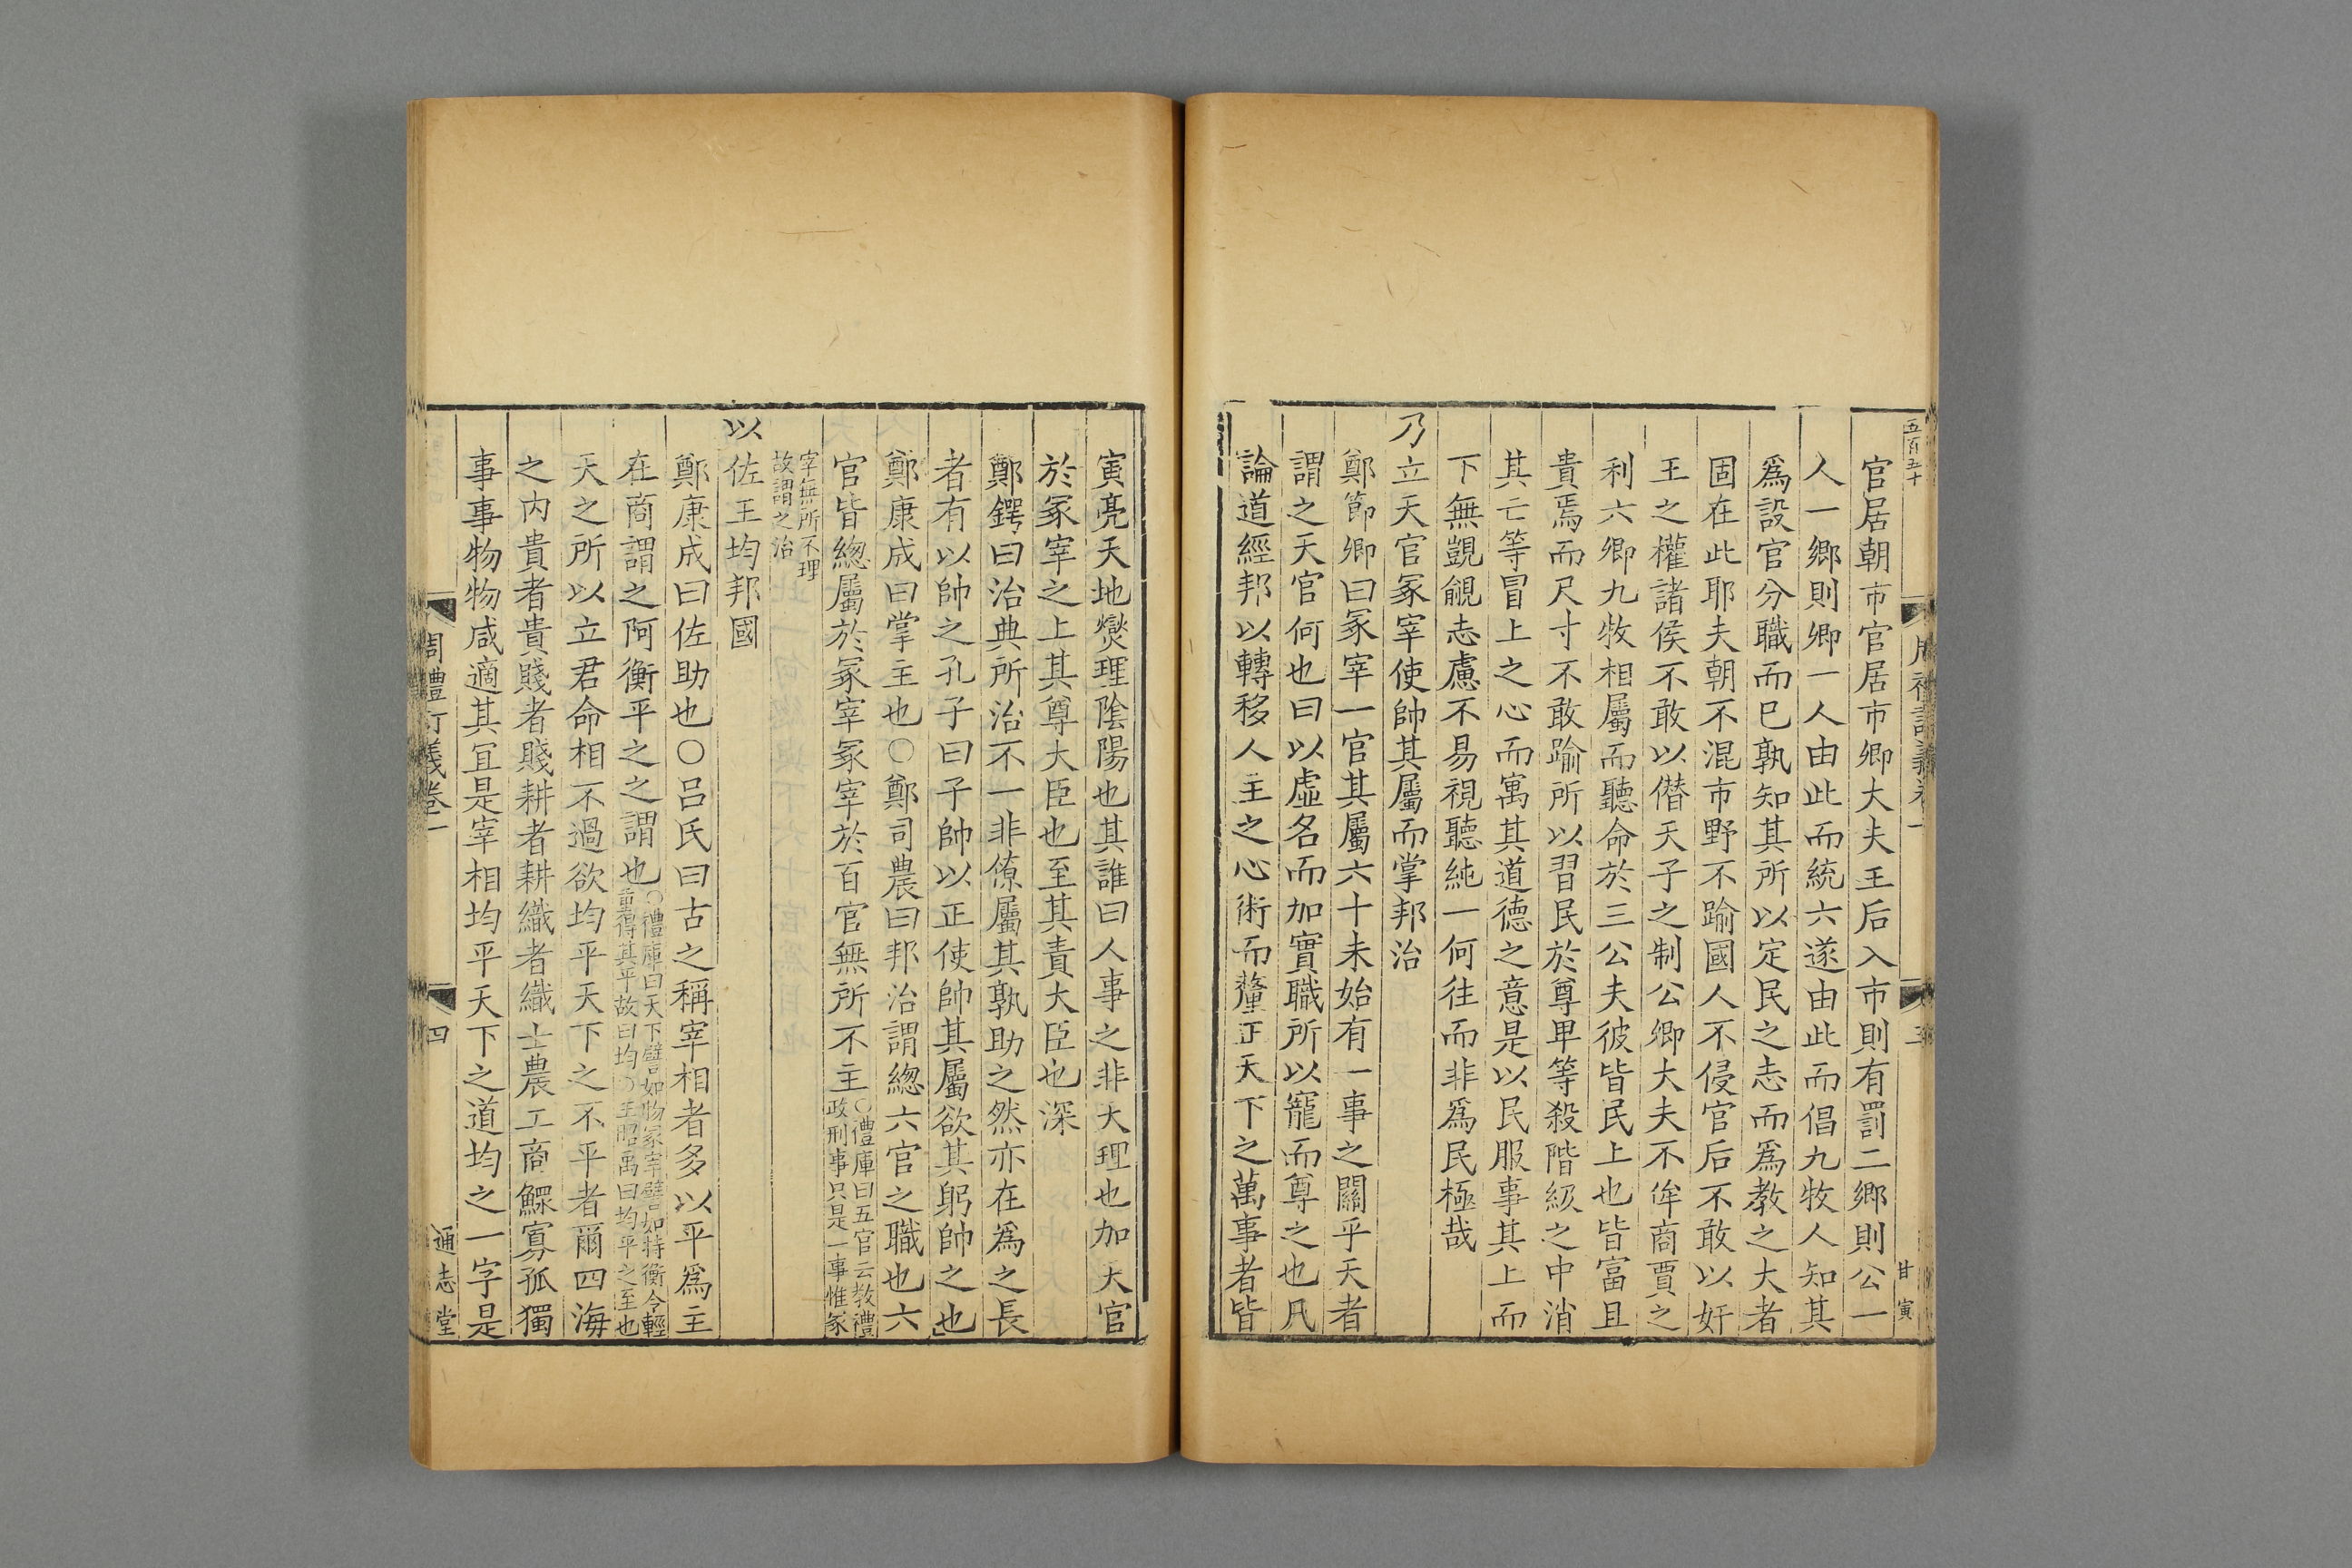 五百五十
周禮訂義卷一
三
甘寅
官居朝市官居市卿大夫王后入市則有罰二鄉則公一
人一鄉則卿一人由此而統六遂由此而倡九牧人知其
爲設官分職而已孰知其所以定民之志而爲教之大者
固在此耶夫朝不混市野不踰國人不侵官后不敢以奸
王之權諸侯不敢以僣天子之制公卿大夫不侔商賈之
利六卿九牧相屬而聽命於三公夫彼皆民上也皆富且
貴焉而尺寸不敢踰所以習民於尊卑等殺階級之中消
其亡等冒上之心而寓其道德之意是以民服事其上而
下無覬覦志慮不易視聽純一何往而非爲民極哉
乃立天官冢宰使帥其屬而掌邦治
鄭節卿曰冢宰一官其屬六十未始有一事之關乎天者
謂之天官何也曰以虛名而加實職所以寵而尊之也凡
論道經邦以轉移人主之心術而釐正天下之萬事者皆
寅亮天地爕理隂陽也其誰曰人事之非大理也加大官
於冢宰之上其尊大臣也至其責大臣也深
鄭鍔曰治典所治不一非僚屬其孰助之然亦在爲之長
者有以帥之孔子曰子帥以正使帥其屬欲其躬帥之也
鄭康成曰掌主也○鄭司農曰邦治謂緫六官之職也六
官皆緫屬於冢宰冢宰於百官無所不主○禮庫曰五官云教禮
政刑事只是一事惟冢
宰無所不理
故謂之治
以佐王均邦國
鄭康成曰佐助也○呂氏曰古之稱宰相者多以平爲主
在商謂之阿衡平之之謂也○禮庫曰天下譬如物冢宰譬如持衡令輕
重得其平故曰均○王昭禹曰均平之至也
天之所以立君命相不過欲均平天下之不平者爾四海
之内貴者貴賤者賤耕者耕織者織士農工商鰥寡孤獨
事事物物咸適其冝是宰相均平天下之道均之一字是
周禮訂義卷一
四
通志堂